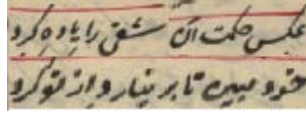 عکس حکمت آن شقی را یاوه کرد
خود مبین تا بر نیارد از تو گرد